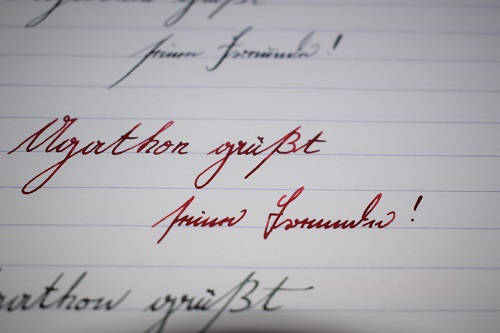 seine Freunde!
Agathon grüßt
seine Freunde!
athon grüßt